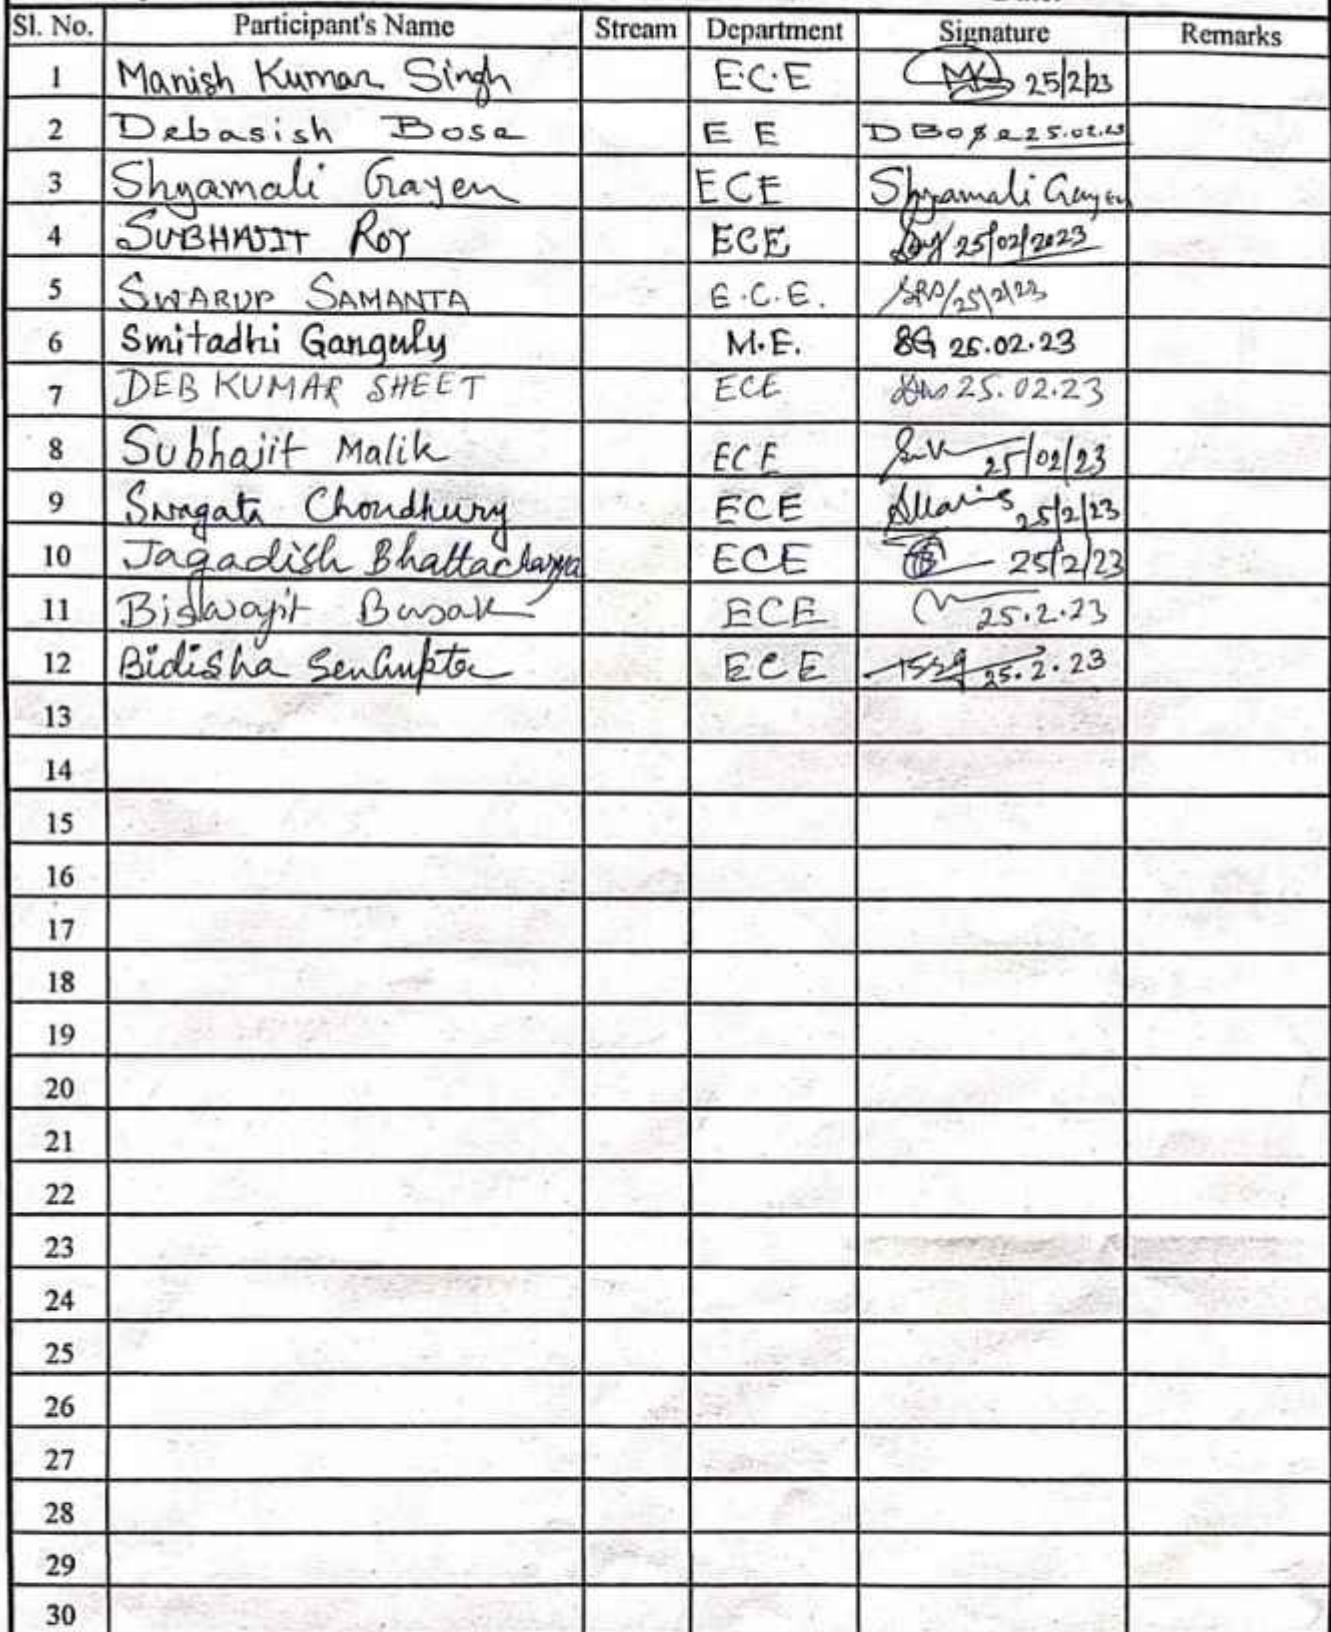 Sl. No. Participant's Name Stream Department Signature Remarks
1 Manish Kumar Singh E.C.E 25/2/23
2 Debasish Bose E E D Bose 25.02.23
3 Shyamali Gayen ECE Shyamali Gayen
4 SUBHAJIT ROY ECE 25/02/2023
5 SWARUP SAMANTA E.C.E. 25/2/23
6 Smitadhi Ganguly M.E. SG 25.02.23
7 DEB KUMAR SHEET ECE 25.02.23
8 Subhajit Malik ECE 25/02/23
9 Swagata Choudhury ECE 25/2/23
10 Jagadish Bhattacharyya ECE 25/2/23
11 Biswajit Basak ECE 25.2.23
12 Bidisha SenGupta ECE 25.2.23
13
14
15
16
17
18
19
20
21
22
23
24
25
26
27
28
29
30